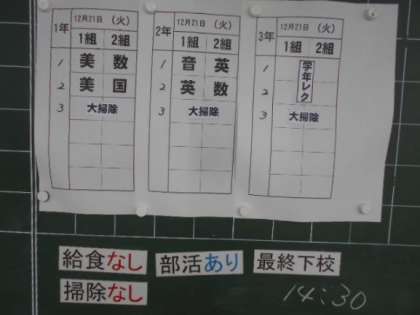 1年 12月21日（火）
1組 2組
1 美 数
2 美 国
3 大掃除
2年 12月21日（火）
1組 2組
1 音 英
2 英 数
3 大掃除
3年 12月21日（火）
1組 2組
1 学年レク
2
3 大掃除
給食なし 部活あり 最終下校
掃除なし 14:30